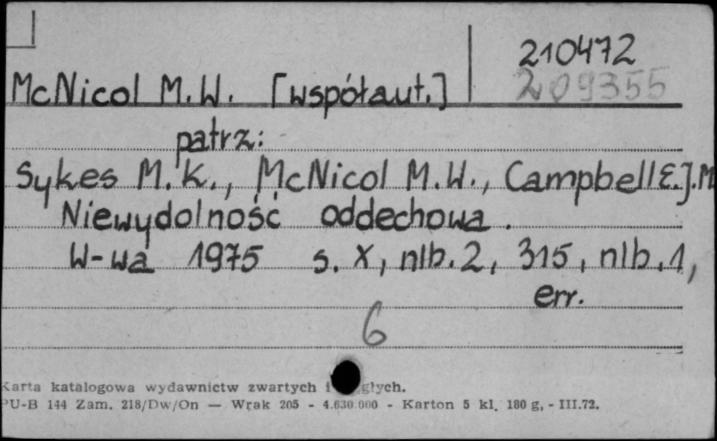 210472
209355
McNicol M.W. [współaut.]
patrz:
Sykes M.K., McNicol M.W., Campbell E.J.M
Niewydolność oddechowa.
W-wa 1975 s. X, nlb. 2, 315, nlb. 1,
err.
6
Karta katalogowa wydawnictw zwartych i głych.
PU-B 144 Zam. 218/Dw/On — Wrak 205 - 4.630.000 - Karton 5 kl. 180 g, - III.72.